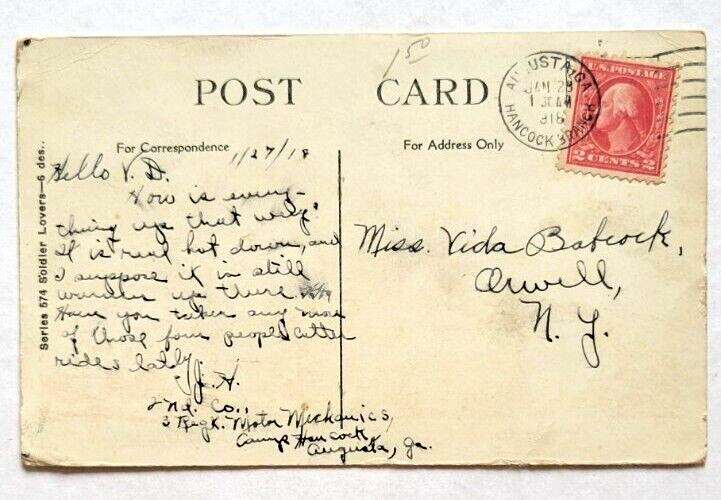 1 50
POST CARD
AUGUSTA, GA.
JAN 28
1 30 AM
1918
HANCOCK BRANCH
U.S. POSTAGE
2 CENTS 2
For Correspondence
For Address Only
Series 574 Soldier Lovers—6 des..
1/27/18
Hello V.B.
How is every-
thing up that way?
It is real hot down, and
I suppose it is still
warmer up there. Ha
Have you taken any more
of those four people cutter
rides lately.
J.H.
2nd. Co.,
3 Regt. Motor Mechanics,
Camp Hancock,
Augusta, Ga.
Miss. Vida Babcock,
Orwell,
N.Y.